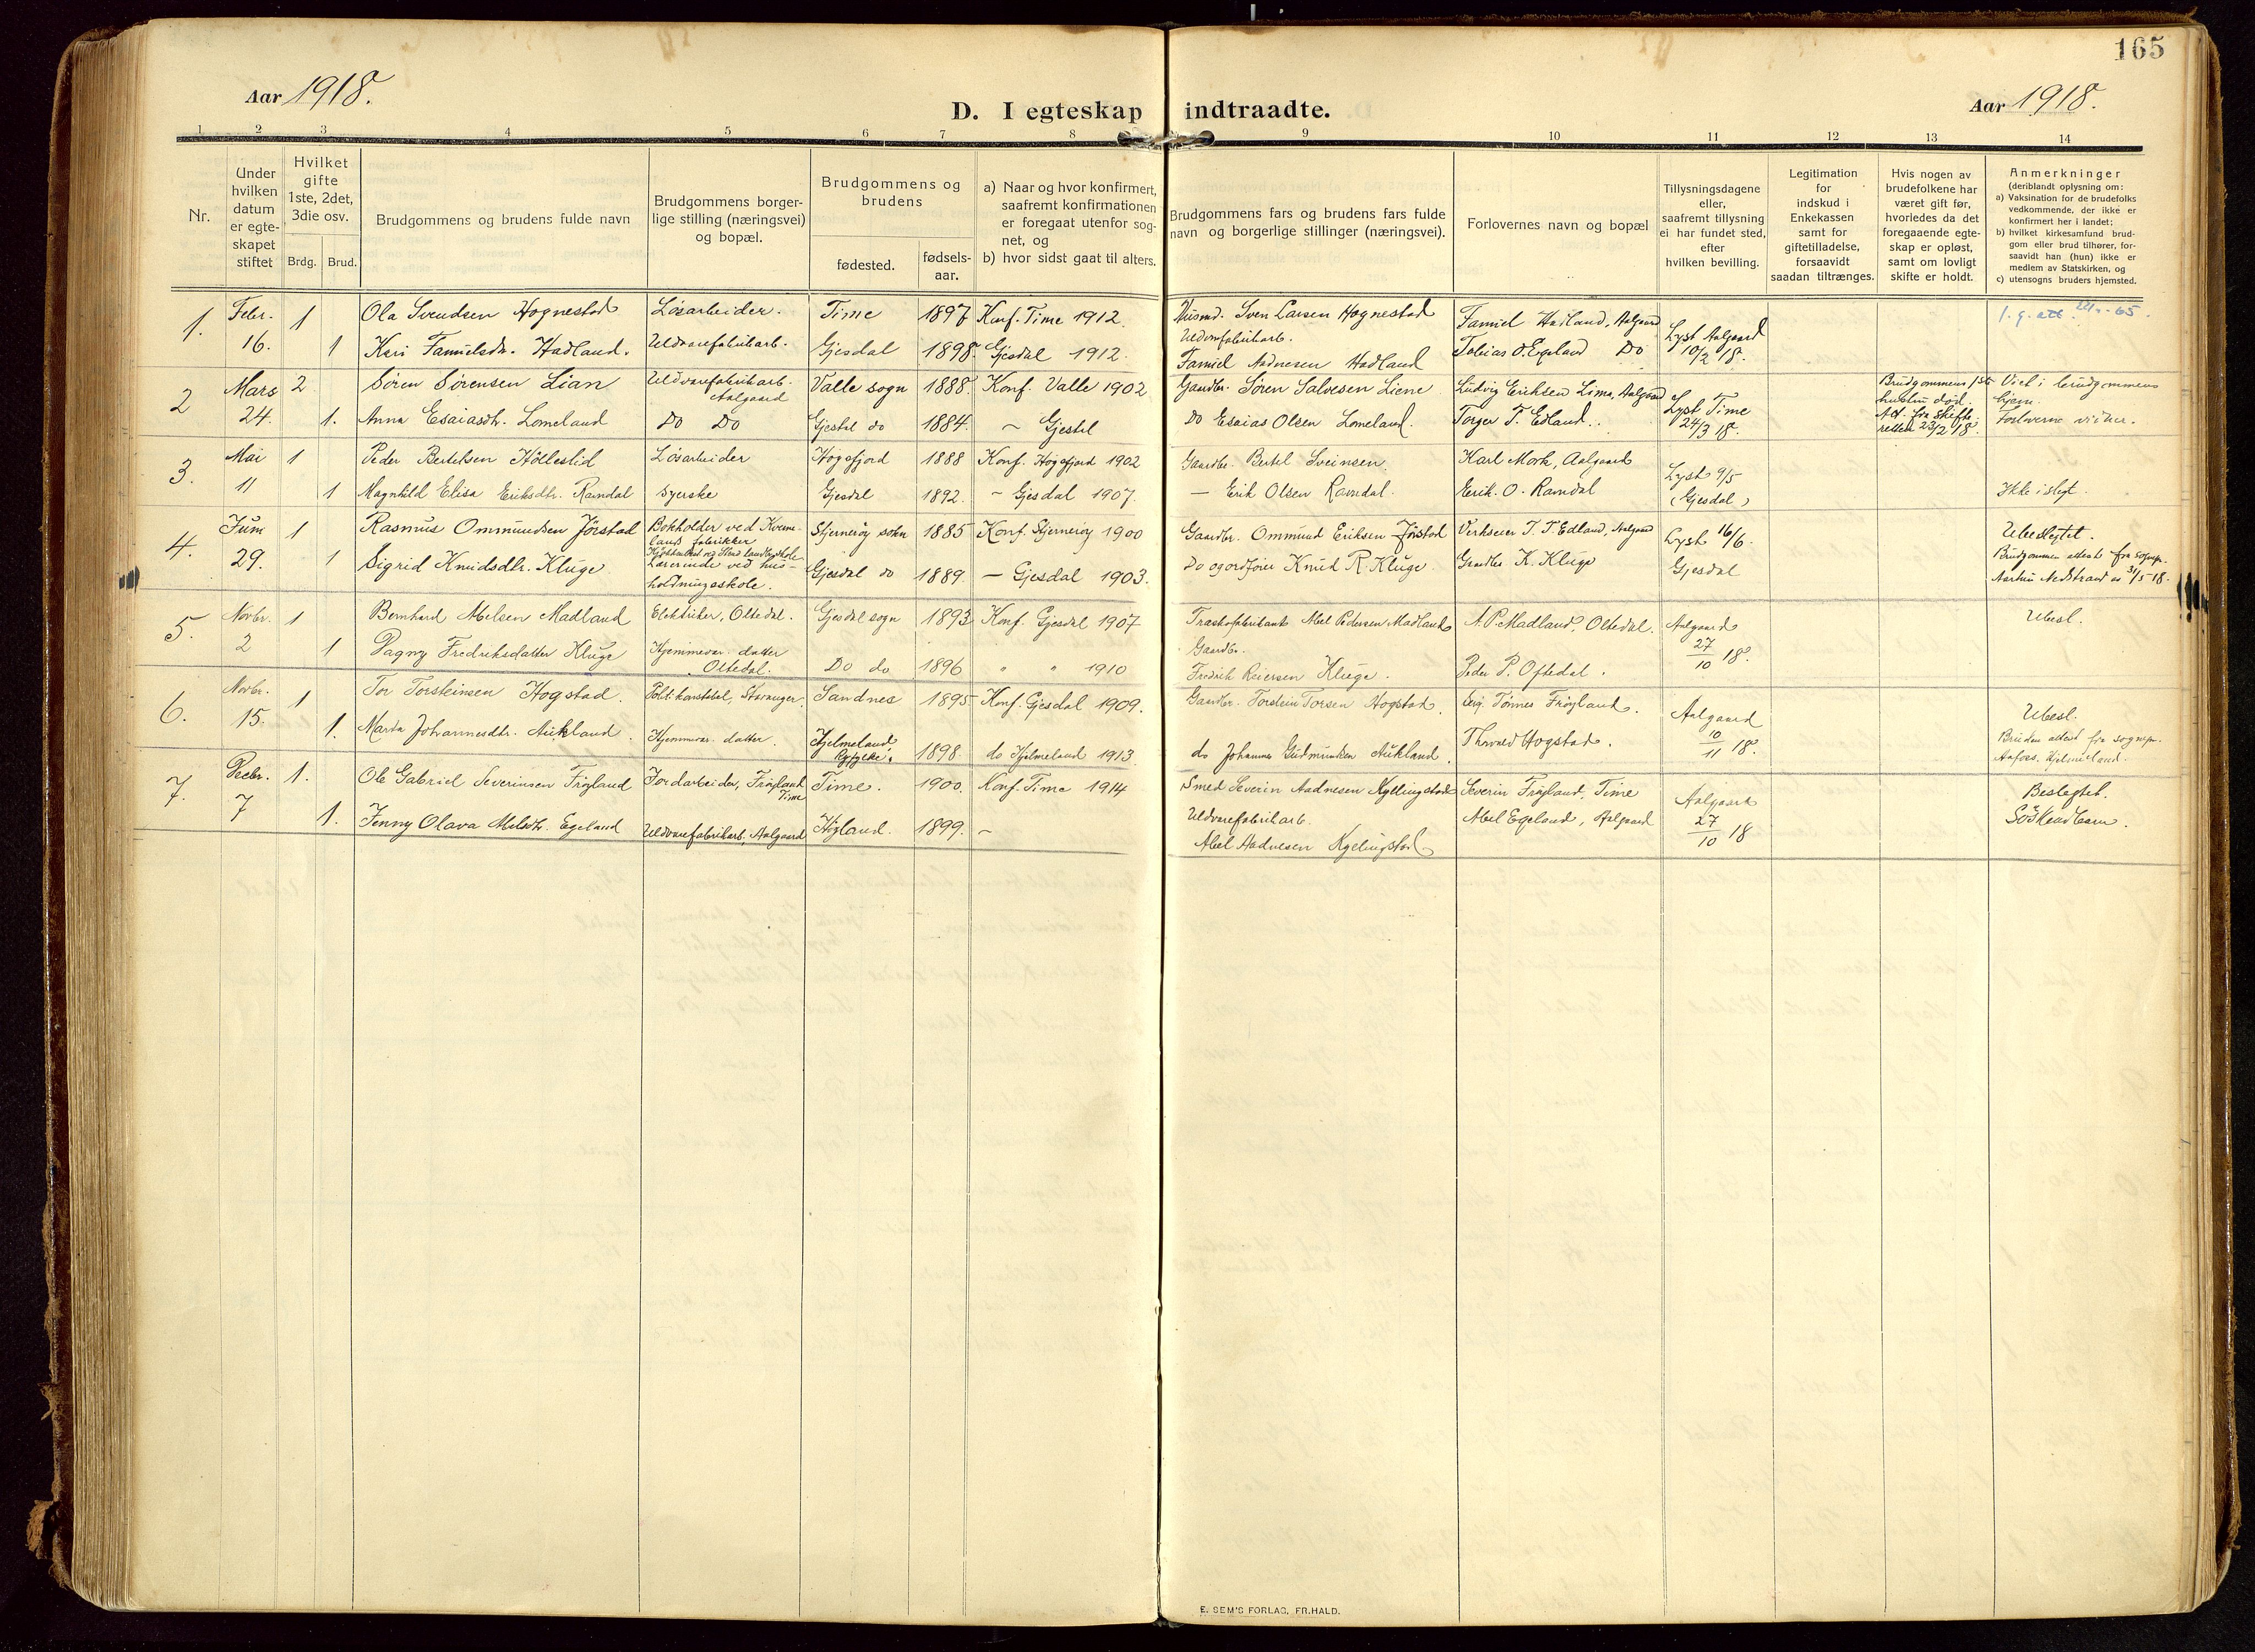 165
Aar 1918.
D. I egteskap indtraadte.
Aar 1918.
1 2 3 4 5 6 7 8 9 10 11 12 13 14
Nr.
Under
hvilken
datum
er egte-
skapet
stiftet
Hvilket
gifte
1ste, 2det,
3die osv.
Brdg. Brud.
Brudgommens og brudens fulde navn
Brudgommens borger-
lige stilling (næringsvei)
og bopæl.
Brudgommens og
brudens
fødested.
fødsels-
aar.
a) Naar og hvor konfirmert,
saafremt konfirmationen
er foregaat utenfor sog-
net, og
b) hvor sidst gaat til alters.
Brudgommens fars og brudens fars fulde
navn og borgerlige stillinger (næringsvei).
Forlovernes navn og bopæl
Tillysningsdagene
eller,
saafremt tillysning
ei har fundet sted,
efter
hvilken bevilling.
Legitimation
for
indskud i
Enkekassen
samt for
giftetilladelse,
forsaavidt
saadan tiltrænges.
Hvis nogen av
brudefolkene har
været gift før,
hvorledes da det
foregaaende egte-
skap er opløst,
samt om lovligt
skifte er holdt.
Anmerkninger
(deriblandt oplysning om:
a) Vaksination for de brudefolks
vedkommende, der ikke er
konfirmert her i landet;
b) hvilket kirkesamfund brud-
gom eller brud tilhører, for-
saavidt han (hun) ikke er
medlem av Statskirken, og
c) utensogns bruders hjemsted.
1. Febr. 1 Ola Svendsen Hognestad Løsarbeider. Time 1897 Konf. Time 1912. Husmd. Sven Larsen Hognestad Tamiel Hadland, Aalgaard Lyst Aalgaard
16. 1 Kari Tamielsdtr. Hadland. Uldvarefabrikarb. Gjesdal 1898. Gjesdal 1912. Uldvarefabrikarb. Tobias O. Egeland Do 10/2 18.
Tamiel Aadnesen Hadland
2 Mars 2 Søren Sørensen Lian Uldvarefabrikarb. Aalgaard Valle sogn 1888. Konf. Valle 1902 Gaardbr. Søren Salvesen Liene Ludvig Eriksen Lima, Aalgaard Lyst Time Brudgommens 1ste Viet i brudgommens
24. 1. Anna Esaiasdtr. Lomeland Do Do Gjestal do 1884. ~ Gjestal Do Esaias Olsen Lomeland. Torger T. Edland. 24/3 18. hustru død. hjem.
Att. fra skifte- Forloverne vidner.
retten 23/2 18.
3. Mai 1 Peder Bertelsen Hølleslid Løsarbeider Høgsfjord 1888 Konf. Høgsfjord 1902 Gaardbr. Bertel Sveinsen. Karl Mork, Aalgaard Lyst 9/5
11 1 Magnhild Elisa Eriksdtr. Ramdal Syerske Gjesdal 1892. ~ Gjesdal 1907. — Erik Olsen Ramdal. Erik. O. Ramdal (Gjesdal) Ikke i slegt.
4. Juni 1 Rasmus Ommundsen Jørstad Bokholder ved Kverne-
lands fabrikker Stjernerøy sokn 1885 Konf. Stjernerøy 1900 Gaardbr. Ommund Eriksen Jørstad Verkseier T. T. Edland, Aalgaard Lyst 16/6. Ubeslegtet.
29. 1 Sigrid Knudsdtr. Kluge Lærerinde ved hus-
holdningsskole. Gjesdal do 1889. — Gjesdal 1903. Do og ordfører Knud R. Kluge. Gaardbr K. Kluge Gjesdal Brudgommen attest fra sognepr.
Nedstrand 31/5-18.
5. Novbr. 1 Bernhard Abelsen Madland Elektriker, Oltedal. Gjesdal sogn 1893 Konf. Gjesdal 1907 Træskofabrikant Abel Pedersen Madland A. P. Madland, Oltedal. Aalgaard Ubesl.
2 1 Dagny Fredriksdatter Kluge Hjemmevær. datter Oltedal. Do do 1896 " " 1910 Gaardbr. Fredrik Reiersen Kluge. Peder P. Oftedal. 27/10 18.
6. Novbr. 1 Tor Torsteinsen Hogstad Politikonstabel, Stavanger. Sandnes 1895. Konf. Gjesdal 1909. Gaardbr. Torstein Torsen Hogstad. Tønnes Frøyland. Aalgaard Ubesl.
15. 1. Marta Johannesdtr. Aukland. Hjemmevær. datter. Hjelmeland, Ryfylke. 1898. do Hjelmeland 1913. do Johannes Gudmundsen Aukland. Thorvald Hogstad. 10/11 18. Bruden attest fra sognepr.
Hjelmeland.
7. Decbr. 1. Ole Gabriel Severinsen Frøyland Jordarbeider, Frøyland Time Time. 1900. Konf. Time 1914 Smed Severin Aadnesen Kyllingstad Severin Frøyland, Time Aalgaard Beslegtet.
7 1. Jenny Olava Abelsdtr. Egeland Uldvarefabrikarb., Aalgaard Høiland. 1899. ~ Uldvarefabrikarb. Abel Egeland, Aalgaard 27/10 18 Søskendbarn.
Abel Aadnesen Kyllingstad
E. SEM'S FORLAG, FR.HALD.